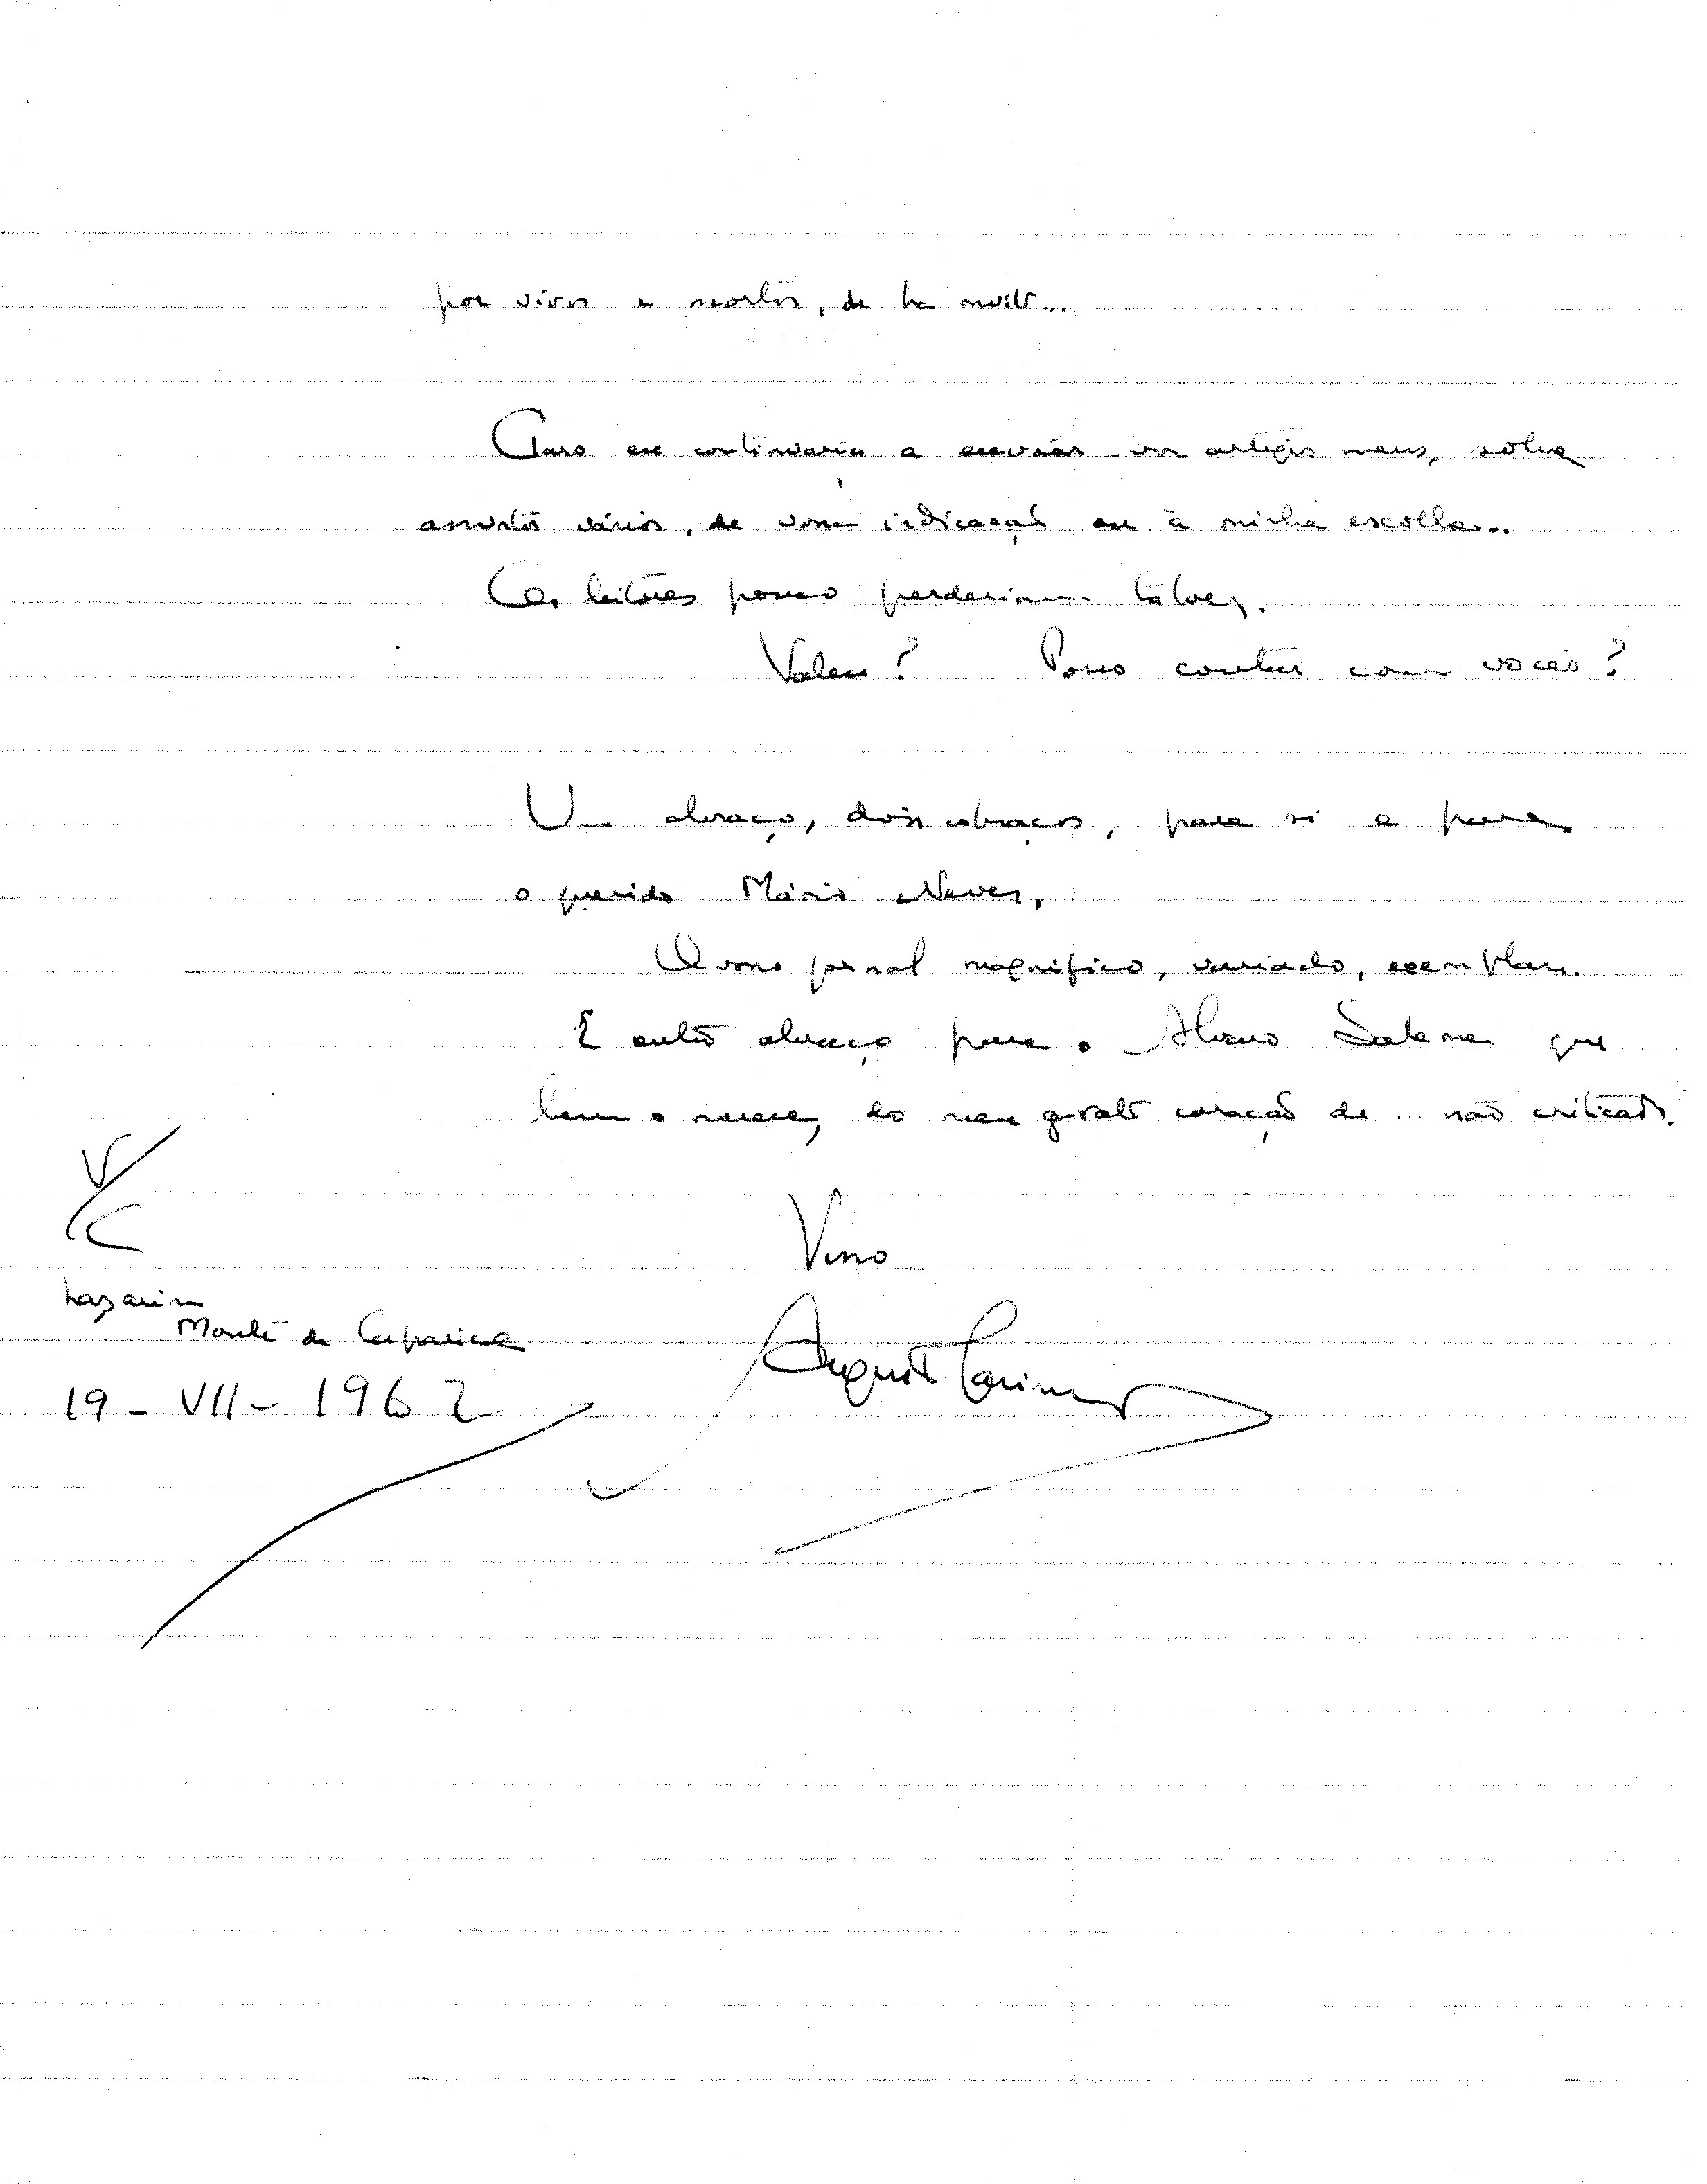 por vivos e mortos, de ha muito...
Claro eu continuaria a enviar-vos artigos meus, sobre
assuntos vários, de vossa indicação ou à minha escolha...
Os leitores pouco perderiam talvez.
Valeu? Posso contar com vocês?
Um abraço, dois abraços, para si e para
o querido Mário Neves,
O vosso jornal magnifico, variado, exemplar.
E outro abraço para o Alvaro Salema que
bem o merece, do meu grato coração de... não criticado.
V/C
Vosso
Lazarim
Monte de Caparica
Augusto Casimiro
19-VII-1962